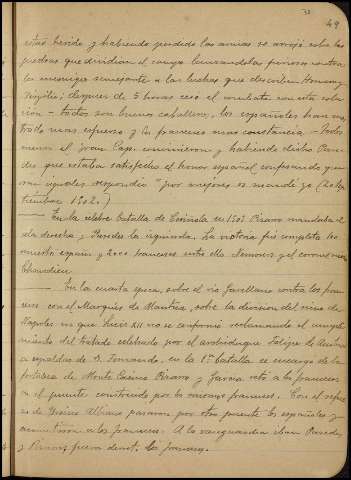 49
estar herido y habiendo perdido las armas se arrojó sobre las
piedras que dividían el campo lanzándolas furioso contra
los enemigos semejante a las luchas que describen Homero y
Virgilio; despues de 5 horas cesó el combate con esta solu
ción — todos son buenos caballeros, los españoles han mos
trado mas esfuerzo y los franceses mas constancia — Todos
menos el Gran Cap. convinieron y habiendo dicho Pare
des que estaba satisfecho el honor español, confesando que
son iguales respondió "por mejores os mandé yo (20 Sep
tiembre 1502.)
— En la celebre batalla de Ceriñola en 1503 Pizarro mandaba el
ala derecha y Paredes la izquierda. La victoria fue completa 100
muertos españ. y 2000 franceses entre ellos Nemours y el coronel
Chandieu.
— En la cuarta epoca, sobre el rio Garellano contra los fran
ceses con el Marqués de Mantua, sobre la division del reino de
Napoles en que Luis XII no se conformó reclamando el cumpli
miento del tratado celebrado por el archiduque Felipe de Austria
a espaldas de D. Fernando. en la 1ª batalla se encargó de la
fortaleza de Monte Casino Pizarro y Garcia retó a los franceses
en el puente construido por los mismos franceses. Con el refuer
zo de Ursino Albiano pasaron por otro puente los españoles y
acometieron a los franceses. A la vanguardia iban Paredes
y Pizarro, fueron derrot. los franceses.